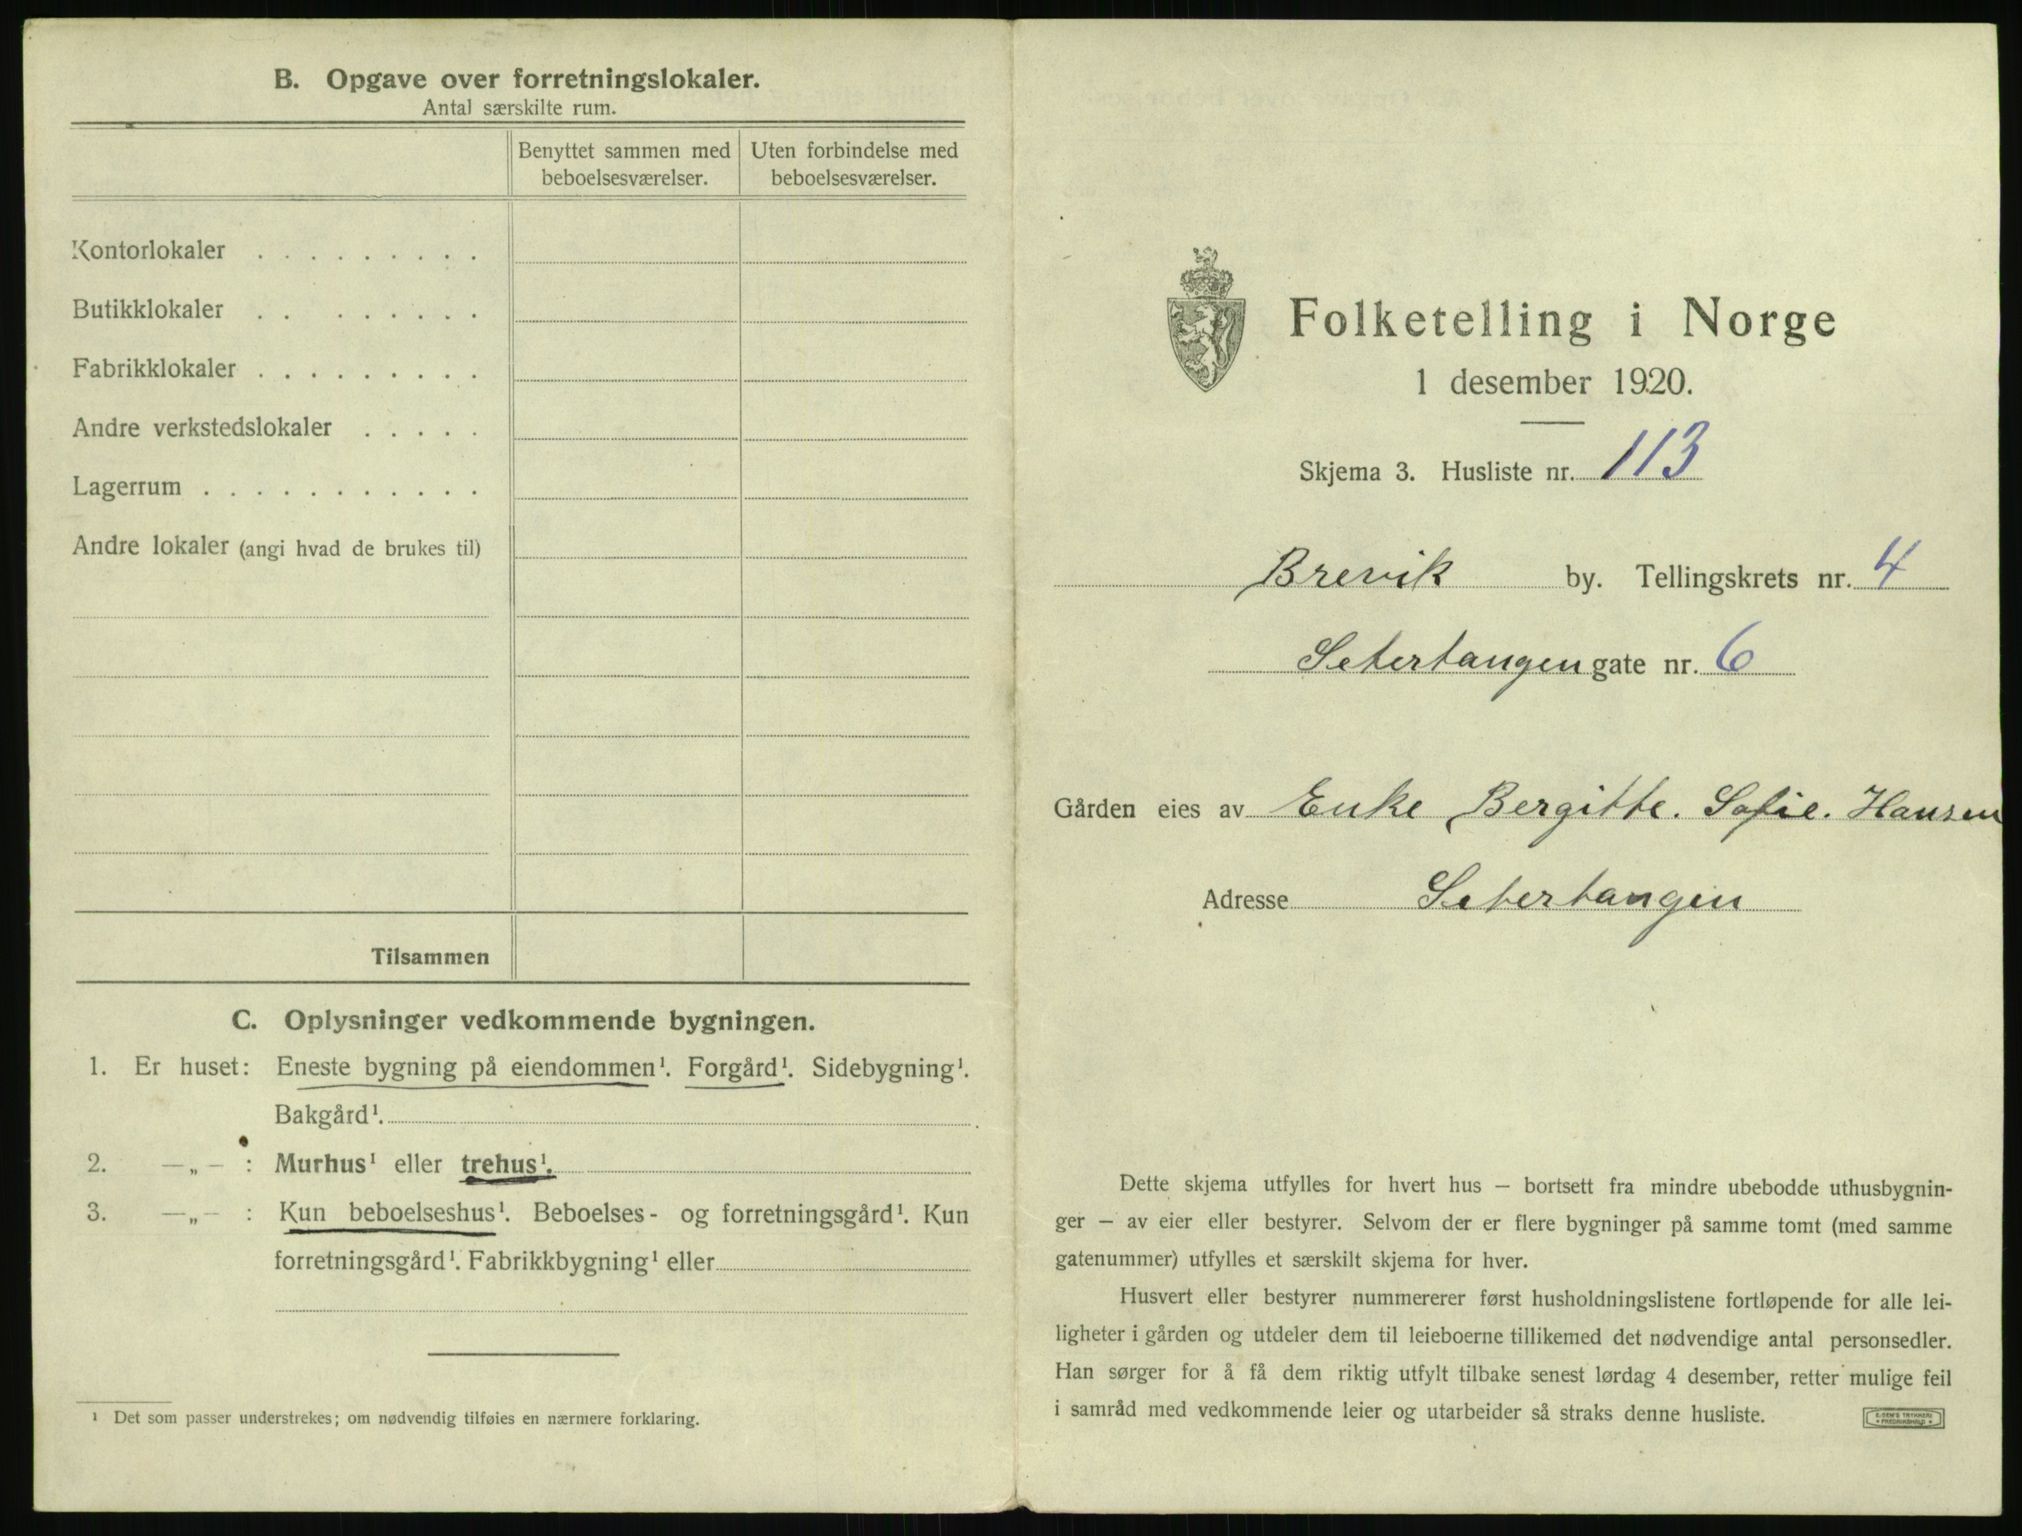 B. Opgave over forretningslokaler.
Antal særskilte rum.
Benyttet sammen med beboelsesværelser.
Uten forbindelse med beboelsesværelser.
Kontorlokaler . . . . . . . . .
Butikklokaler . . . . . . . .
Fabrikklokaler . . . . . . . . .
Andre verkstedslokaler . . . . .
Lagerrum . . . . . . . . . . .
Andre lokaler (angi hvad de brukes til)
Tilsammen
C. Oplysninger vedkommende bygningen.
1. Er huset: Eneste bygning på eiendommen¹. Forgård¹. Sidebygning¹.
Bakgård¹.
2. —„— : Murhus¹ eller trehus¹.
3. —„— : Kun beboelseshus¹. Beboelses- og forretningsgård¹. Kun
forretningsgård¹. Fabrikkbygning¹ eller
¹ Det som passer understrekes; om nødvendig tilføies en nærmere forklaring.
Folketelling i Norge
1 desember 1920.
Skjema 3. Husliste nr. 113
Brevik by. Tellingskrets nr. 4
Setertangen gate nr. 6
Gården eies av Enke Bergitte. Sofie. Hansen
Adresse Setertangen
Dette skjema utfylles for hvert hus — bortsett fra mindre ubebodde uthusbygnin-
ger — av eier eller bestyrer. Selvom der er flere bygninger på samme tomt (med samme
gatenummer) utfylles et særskilt skjema for hver.
Husvert eller bestyrer nummererer først husholdningslistene fortløpende for alle lei-
ligheter i gården og utdeler dem til leieboerne tillikemed det nødvendige antal personsedler.
Han sørger for å få dem riktig utfylt tilbake senest lørdag 4 desember, retter mulige feil
i samråd med vedkommende leier og utarbeider så straks denne husliste.
E. SEM'S TRYKKERI
FREDRIKSHALD